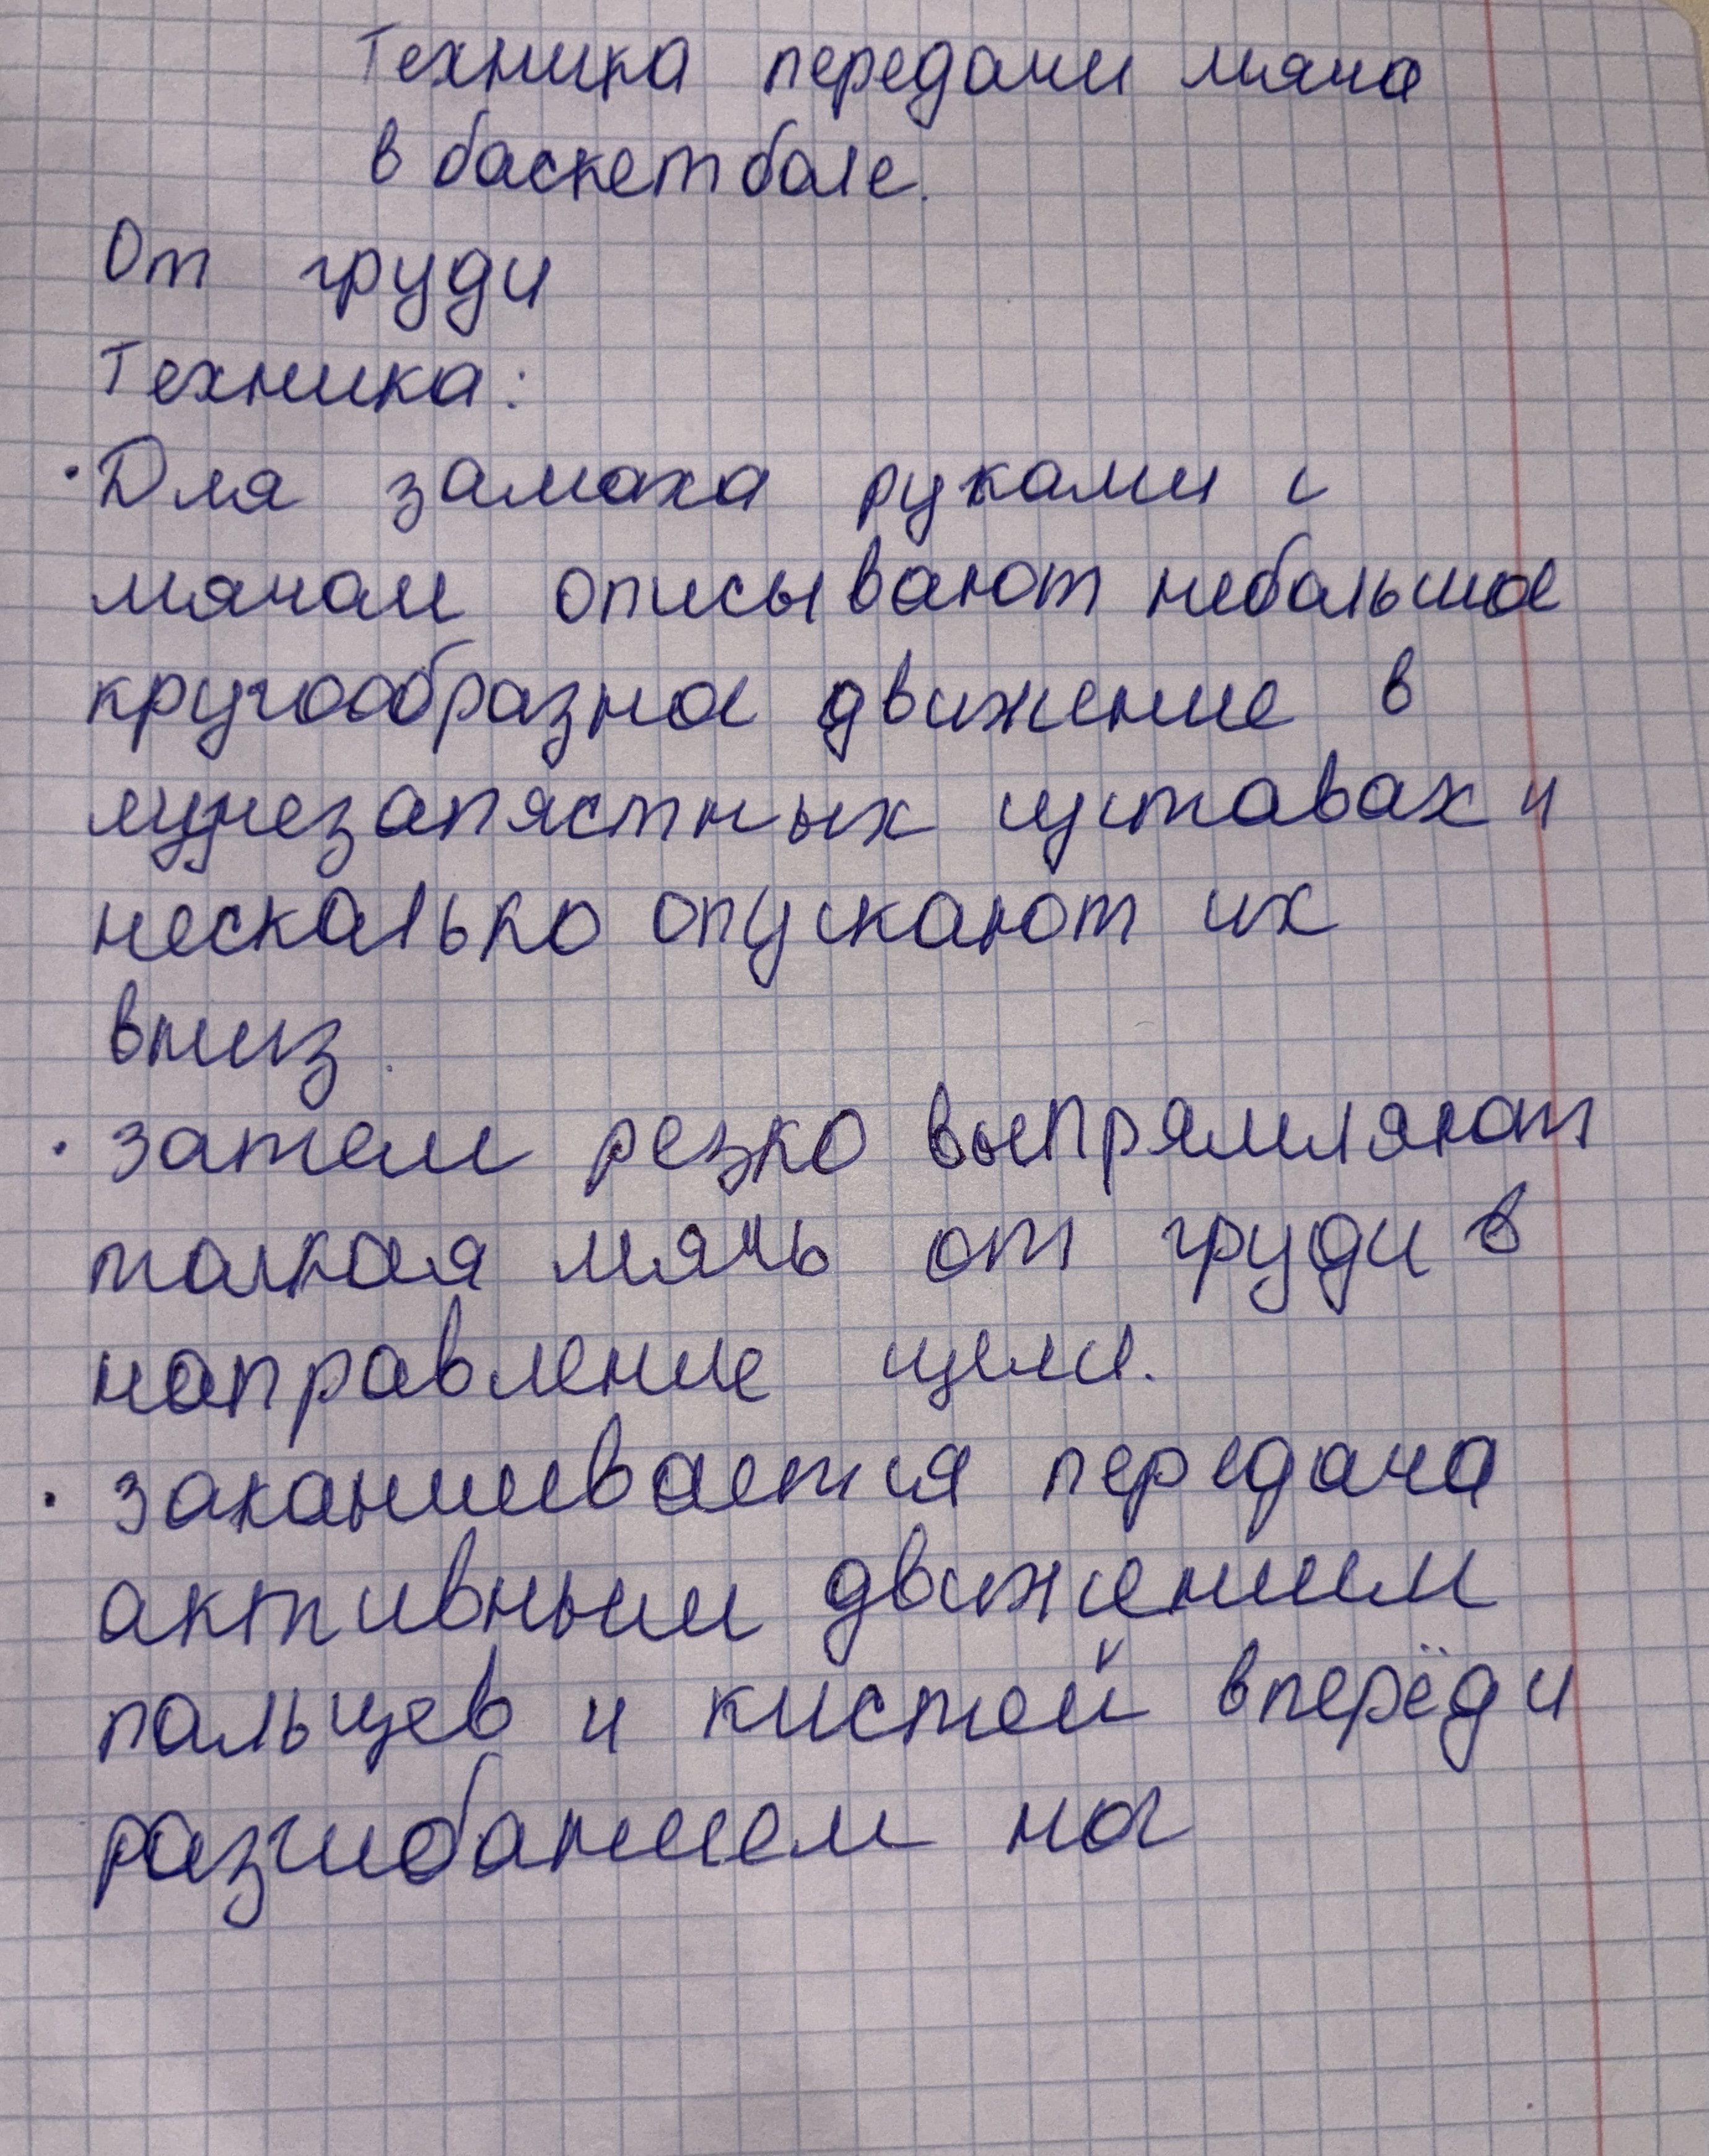 Техника передачи мяча
в баскетболе.
От груди
Техника:
· Для замаха руками с
мячом описывают небольшое
кругообразное движение в
лучезапястных суставах и
несколько опускают их
вниз.
· затем резко выпрямляют
толкая мячь от груди в
направление цели.
· заканчивается передача
активным движением
пальцев и кистей вперёд и
разгибанием ног